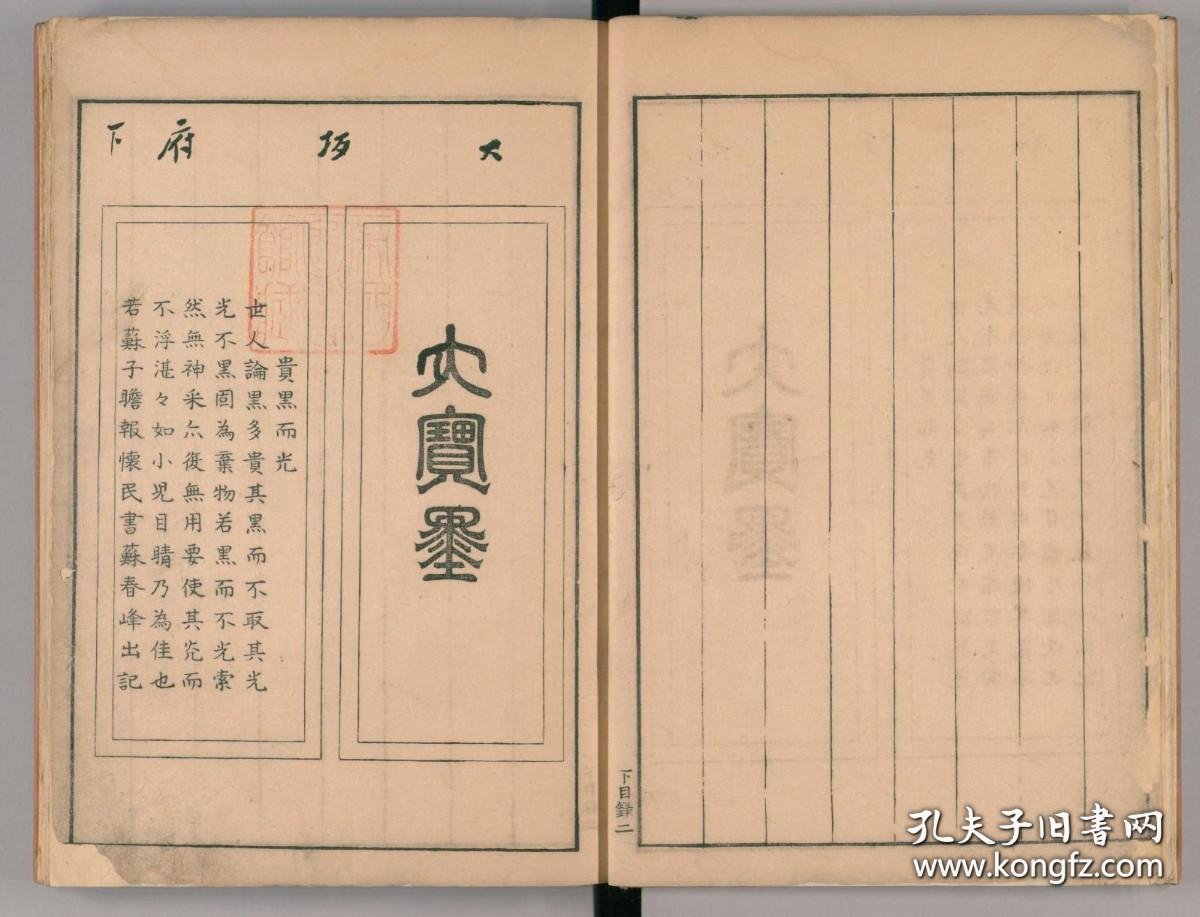 下目錄二
大坂府下
大寶墨
貴黒而光
世人論黒多貴其黒而不取其光
光不黒固為棄物若黒而不光索
然無神采亦復無用要使其光而
不浮湛々如小児目睛乃為佳也
若蘇子瞻報懐民書蘇春峰出記
孔夫子旧书网
www.kongfz.com